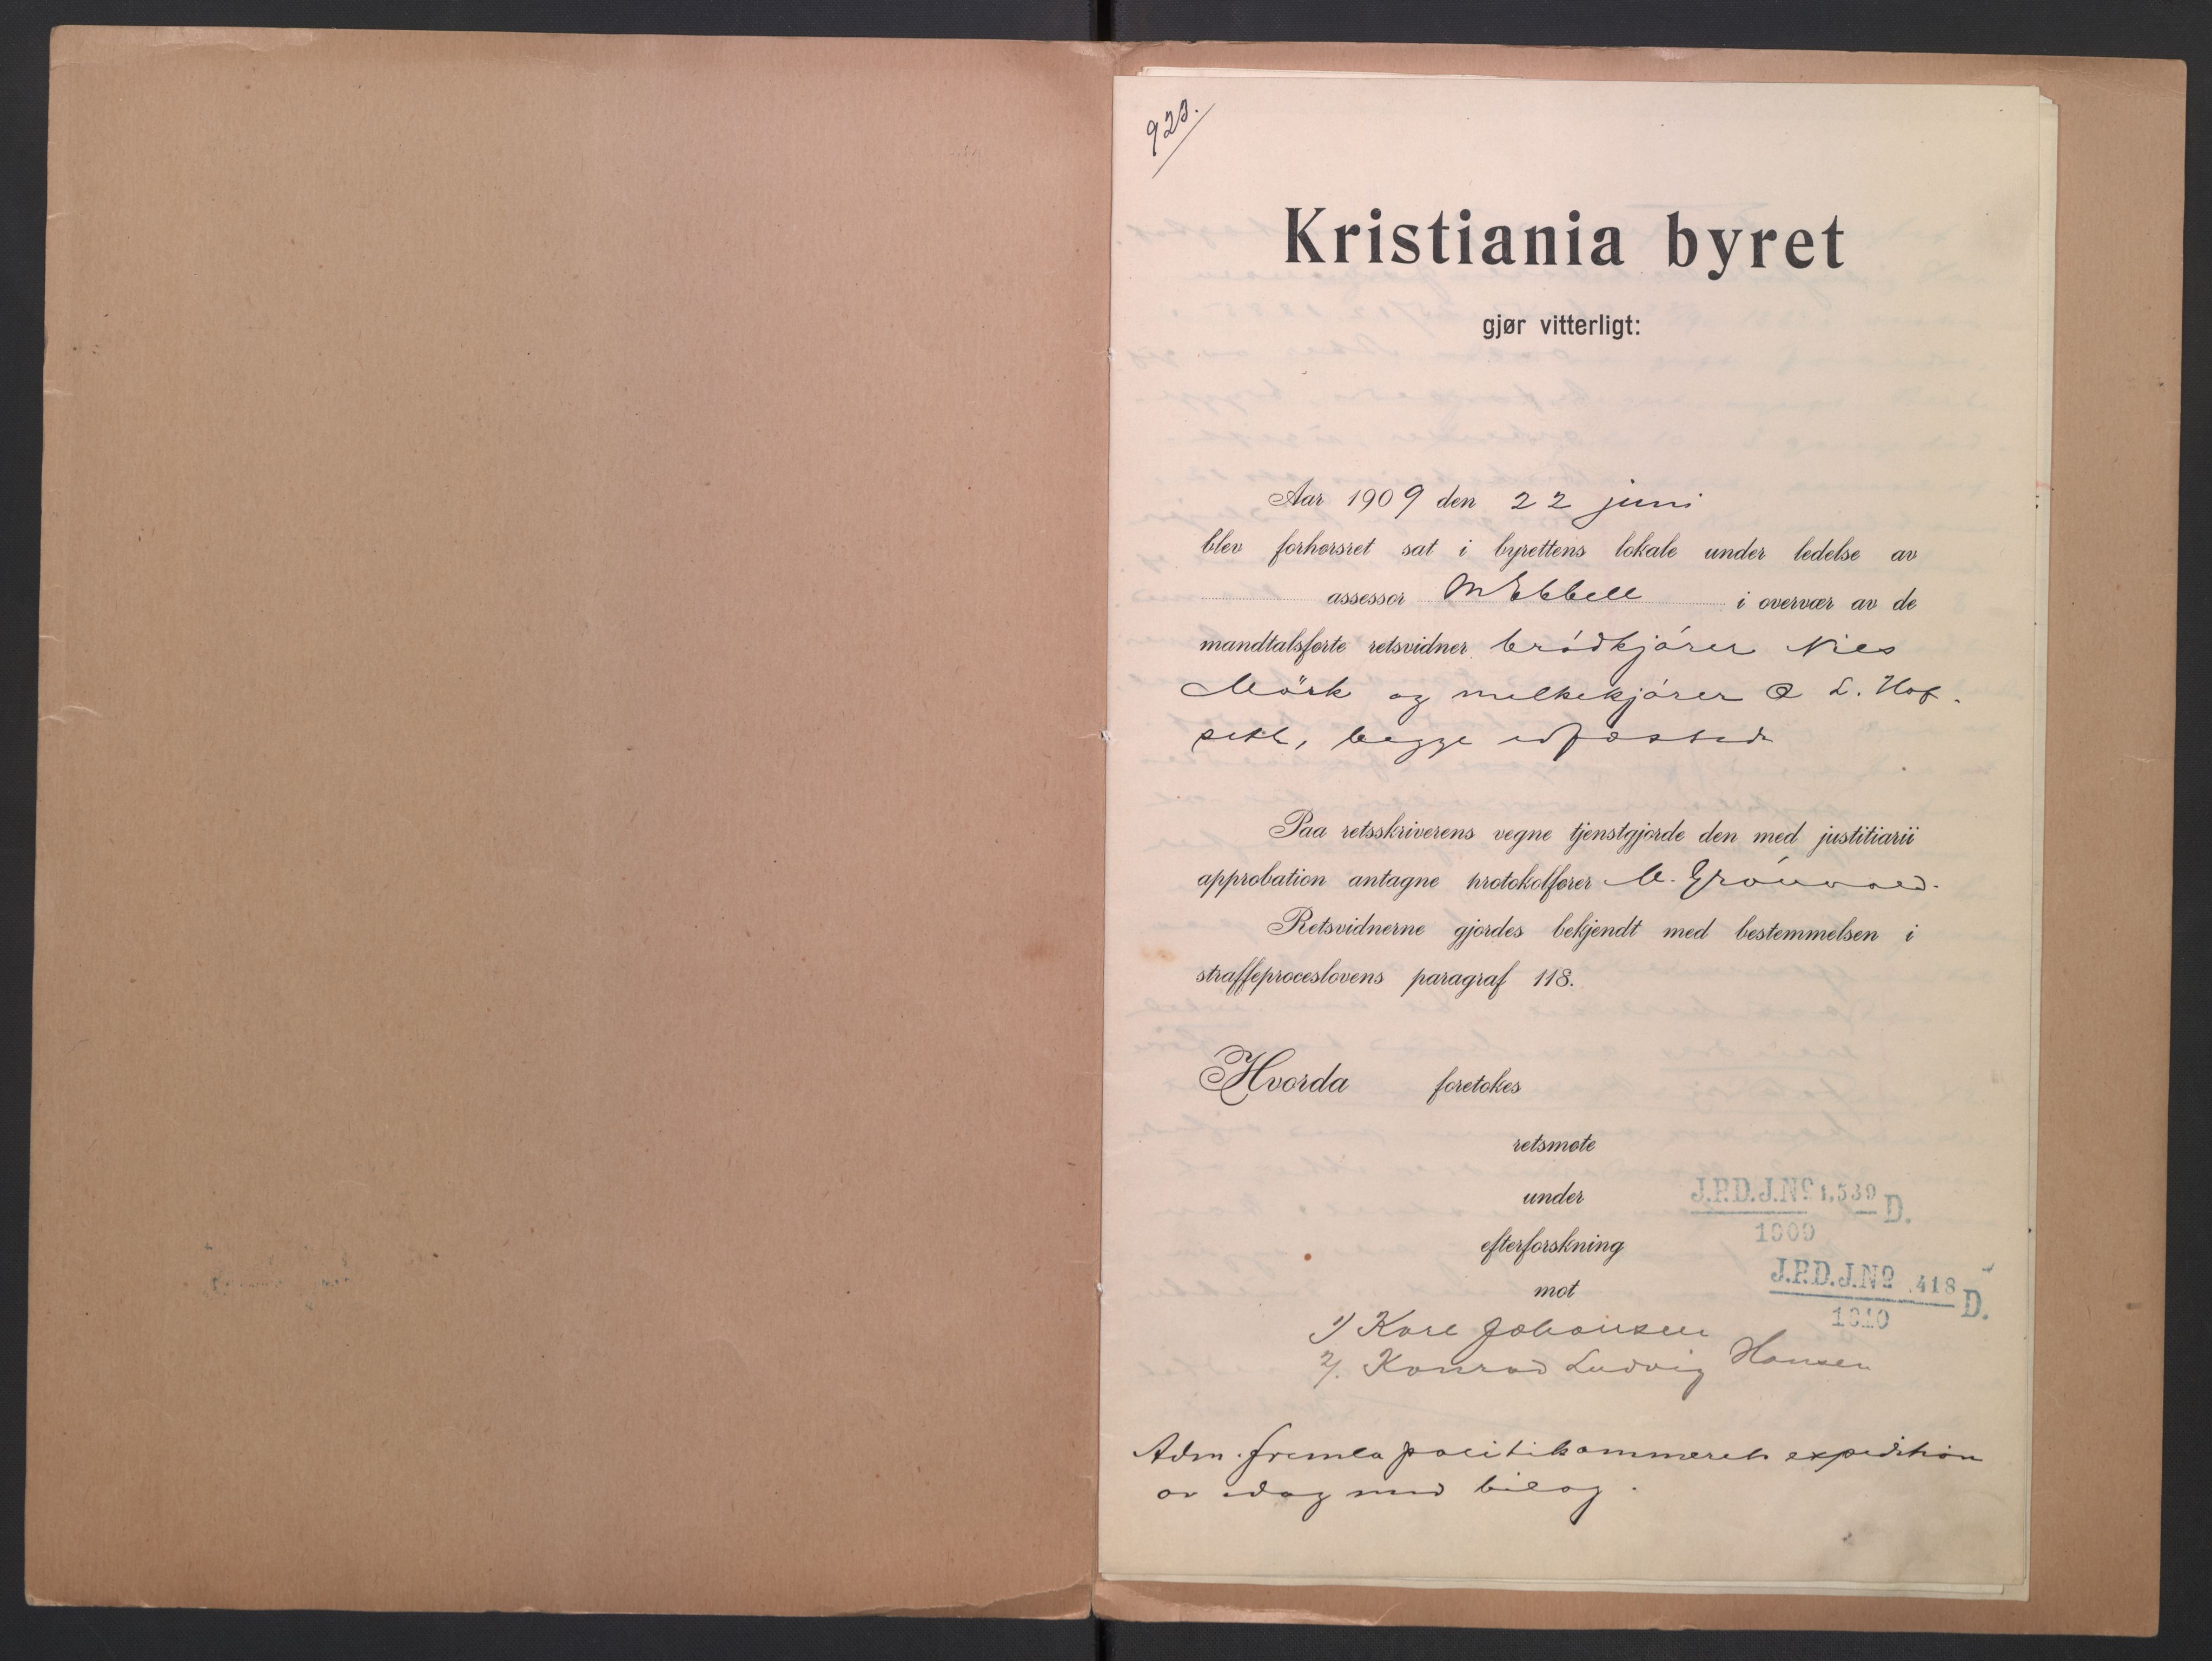 923.
Kristiania byret
gjør vitterligt:
Aar 1909 den 22 juni
blev forhørsret sat i byrettens lokale under ledelse av
assessor M Ebbell i overvær av de
mandtalsførte retsvidner brödkjörer Nils
Mörk og melkekjörer O L. Hof-
seth, begge edfæstede
Paa retsskriverens vegne tjenstgjorde den med justitiarii
approbation antagne protokolfører M. Grönvold.
Retsvidnerne gjordes bekjendt med bestemmelsen i
straffeproceslovens paragraf 118.
Hvorda foretokes
retsmøte
under
J.P.D.J.Nº 1,539 D.
1909
efterforskning
mot
J.P.D.J.Nº 418 D.
1910
1) Karl Johansen
2). Konrad Ludvig Hansen
Adm. fremla politikammerets expedition
av idag med bilag.